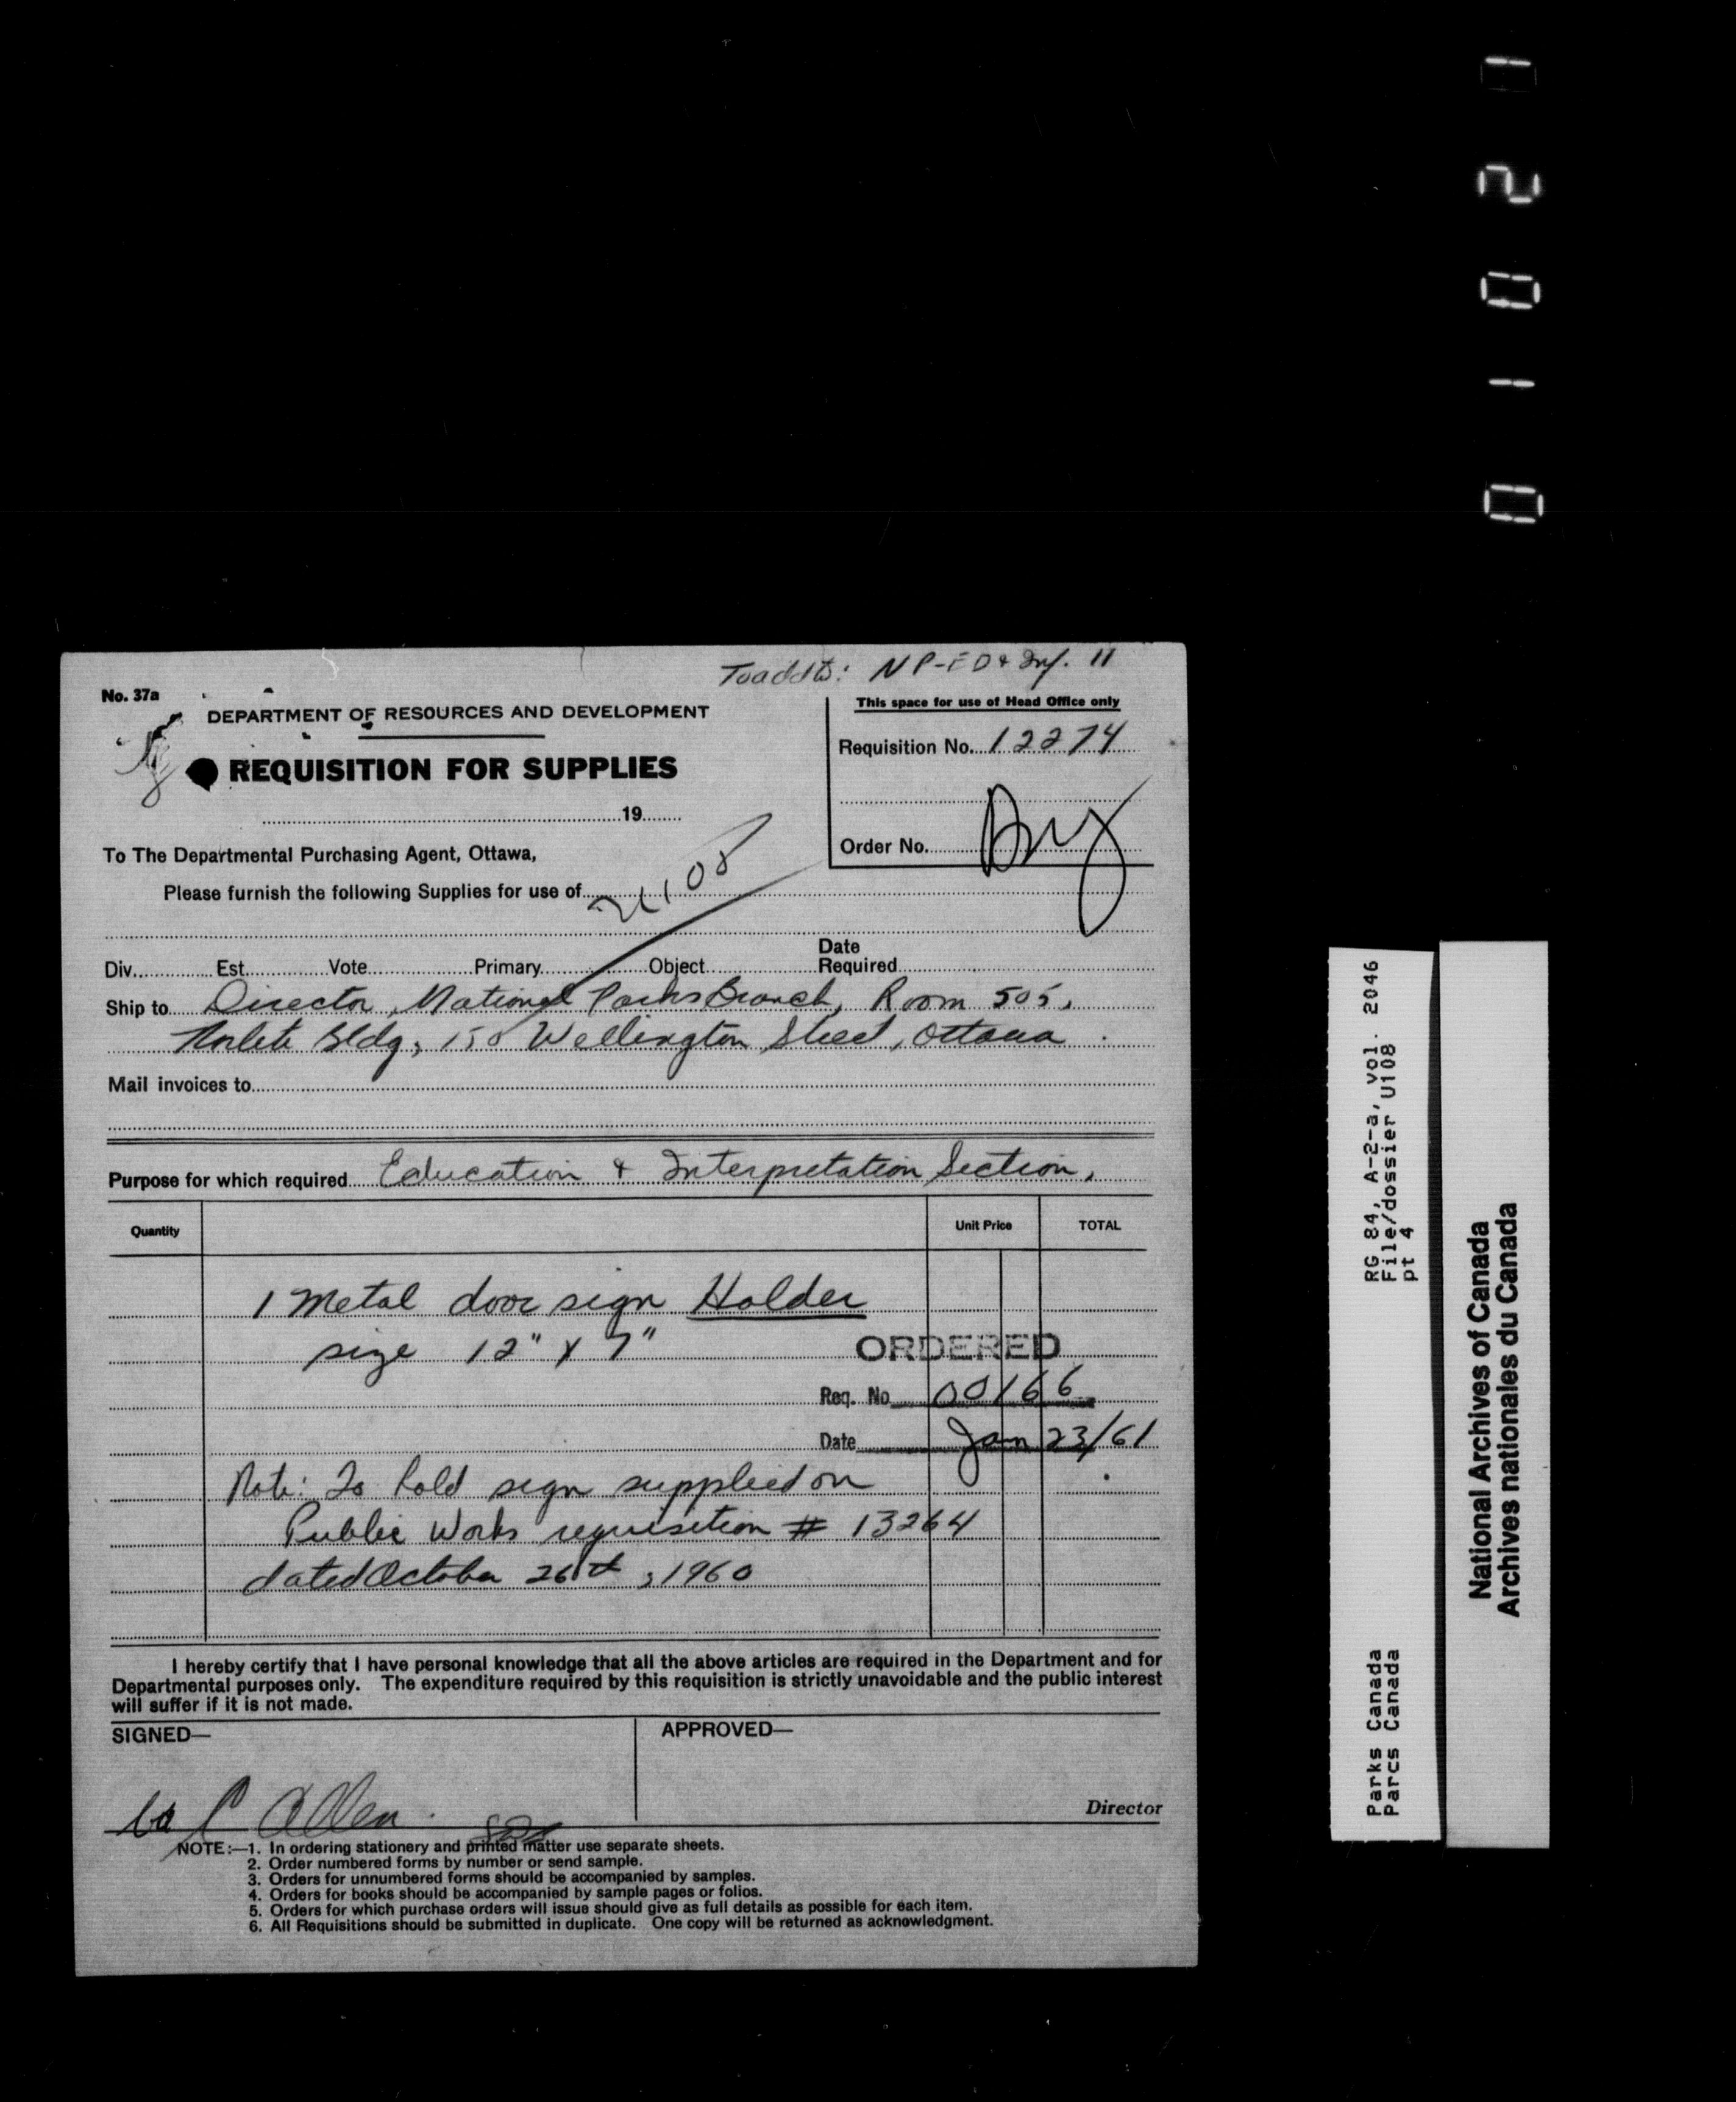 NP-ED & Inf. 11
No. 37a
DEPARTMENT OF RESOURCES AND DEVELOPMENT
REQUISITION FOR SUPPLIES
19
This space for use of Head Office only
Requisition No. 12274
Order No.
To The Departmental Purchasing Agent, Ottawa,
Please furnish the following Supplies for use of
U108
Div. Est. Vote Primary Object Date Required
Ship to Director, National Parks Branch, Room 505,
Norlite Bldg, 150 Wellington Street, Ottawa
Mail invoices to
Purpose for which required Education & Interpretation Section,
Quantity Unit Price TOTAL
1 Metal door sign Holder
size 12" x 7"
ORDERED
Req. No 00166
Date Jan 23/61
Note: To hold sign supplied on
Public Works requisition # 13264
dated October 26th, 1960
I hereby certify that I have personal knowledge that all the above articles are required in the Department and for
Departmental purposes only. The expenditure required by this requisition is strictly unavoidable and the public interest
will suffer if it is not made.
SIGNED—
APPROVED—
Allen
Director
NOTE:—1. In ordering stationery and printed matter use separate sheets.
2. Order numbered forms by number or send sample.
3. Orders for unnumbered forms should be accompanied by samples.
4. Orders for books should be accompanied by sample pages or folios.
5. Orders for which purchase orders will issue should give as full details as possible for each item.
6. All Requisitions should be submitted in duplicate. One copy will be returned as acknowledgment.
RG 84, A-2-a, vol. 2046
File/dossier U108
pt 4
Parks Canada
Parcs Canada
National Archives of Canada
Archives nationales du Canada
010021